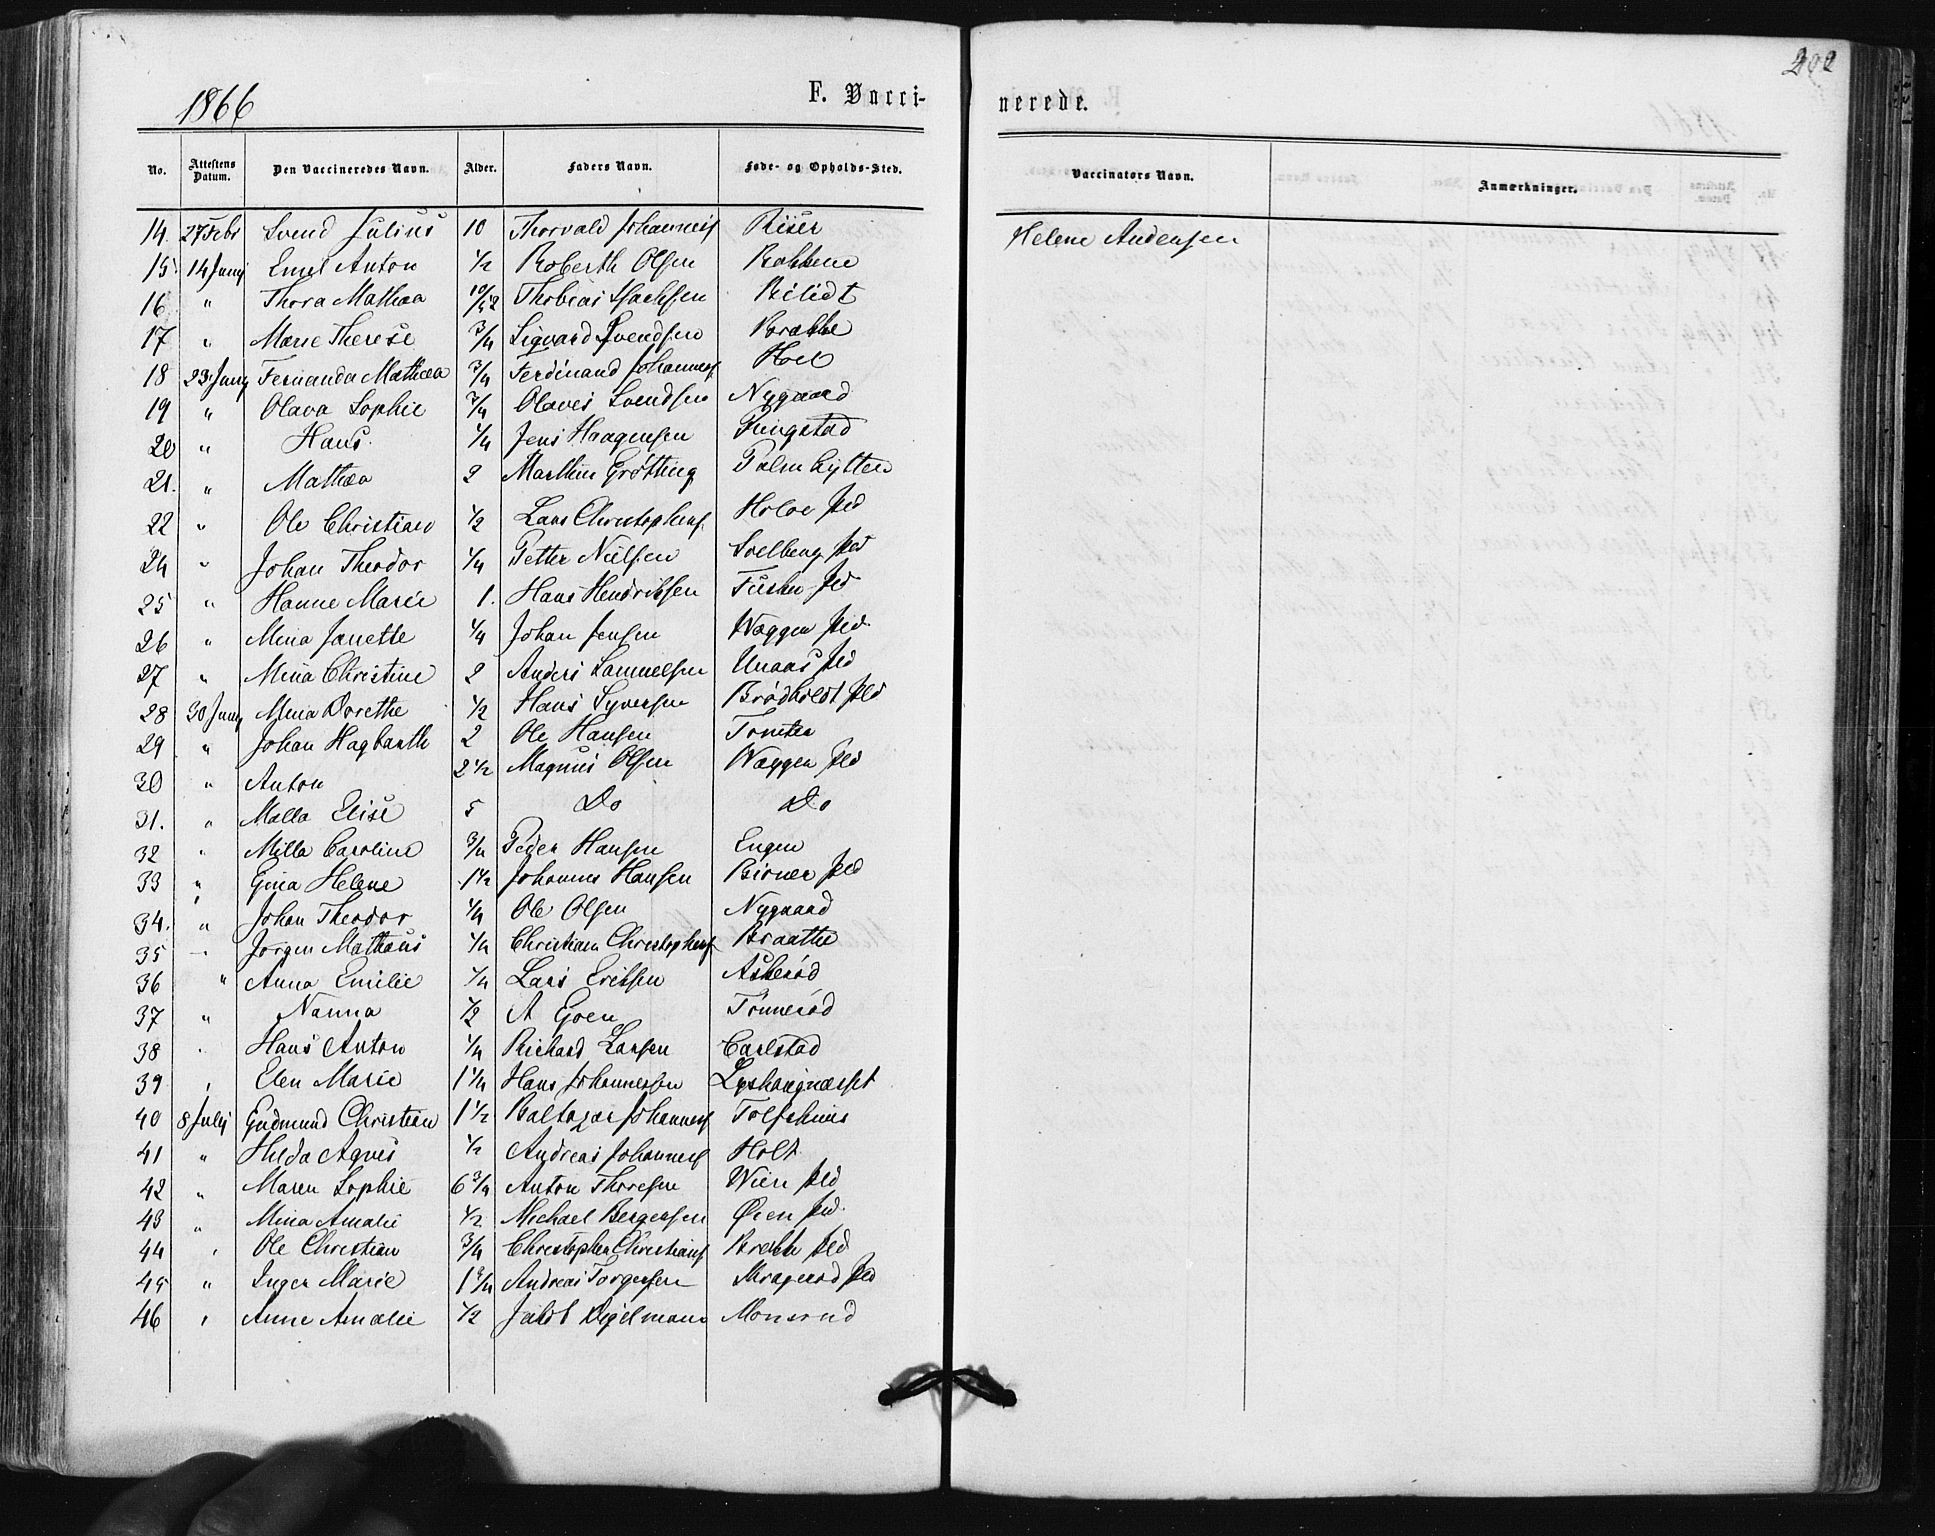 1866 F. Vacci-
No. Attestens Datum. Den Vaccineredes Navn. Alder. Faders Navn. Føde- og Opholds-Sted.
14. 27 Febr Svend Julius 10 Thorvald Johannesf Riiser
15 14 Juny Emil Anton 1/2 Roberth Olsen Bakkene
16 " Thora Mathea 10/12 Thobias Isachsen Bilidt
17 " Marie Therese 3/4 Sigvard Svendsen Brække
18 23 Juny Fernanda Mathea 3/4 Ferdinand Johannesf Hoel
19 " Olava Sophie 3/4 Olaves Svendsen Nygaard
20 " Hans 1/4 Jens Haagensen Tingstad
21. " Mathea 2 Marthin Grøtting Palm hytten
22 " Ole Christian 1/2 Lars Christophersf Holoe Pld
24 " Johan Theodor 1/4 Petter Nielsen Soelberg Pld
25 " Hanne Marie 1. Hans Hendriksen Pld
26 " Mina Janette 1/4 Johan Jensen Wæggen Pld
27 " Mina Christine 2 Anders Samuelsen Unaas Pld
28 30 Juny Mina Dorethe 1/2 Hans Syversen Brødholdt Pld
29 " Johan Hagbarth 2 Ole Hansen Tomter
30 " Anton 2 1/2 Magnus Olsen Wæggen Pld
31. " Malla Elise 5 Do Do
32 " Milla Caroline 3/4 Peder Hansen Engen
33 " Gina Helene 1 1/2 Johannes Hansen Birner Pld
34. " Johan Theodor 1/4 Ole Olsen Nygaard
35 — Jørgen Mathæus 1/4 Christian Christophersf Braathe
36 " Anna Emilie 1/4 Lars Eriksen Askerød
37 " Nanna 1/2 A Goen Tønnerød
38 " Hans Anton 1/4 Richard Larsen Carlstad
39 " Elen Marie 1 1/4 Hans Johannessen Lyshaugnæsset
40 8 July Gudmund Christian 1 1/2 Baltazar Johannesf Tolfshuus
41 " Hilda Agnes 1/2 Andreas Johannesf Holt
42 " Maren Sophie 6 3/4 Anton Thoresen Wien Pld
43 " Mina Amalie 1/2 Michael Bergersen Øien Pld
44 " Ole Christian 3/4 Christopher Christiansf Brekk Pld
45 " Inger Marie 1 3/4 Andreas Torgersen Pld
46 " Anne Amalie 1/2 Jakob Digelmann Monsrud
202
nerede.
Vaccinators Navn. Anmærkninger.
Helene Andensen